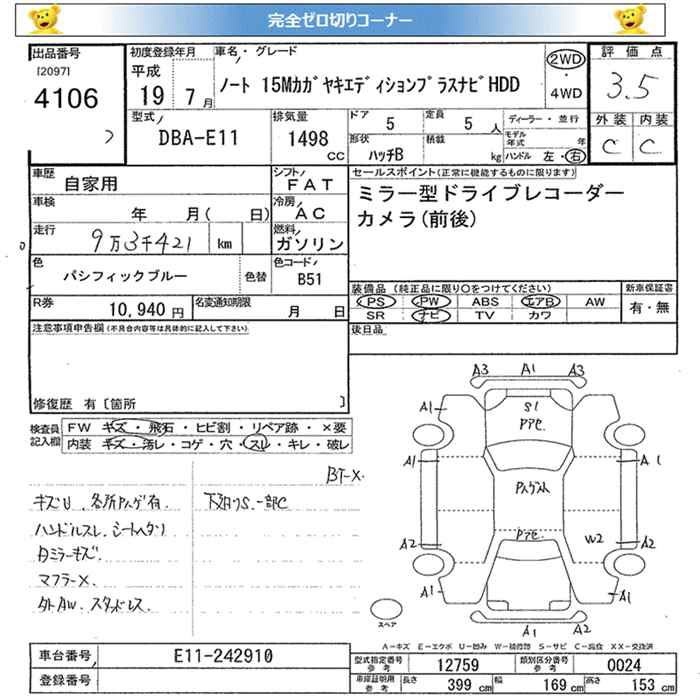 完全ゼロ切りコーナー
出品番号 初度登録年月 車名・グレード 評価点
[2097] 平成 2WD
4106 19 7月 ノート 15MカガヤキエディションプラスナビHDD ・ 3.5
4WD
型式 排気量 ドア 5 定員 5人 ディーラー・並行 外装 内装
DBA-E11 1498 cc 形状 ハッチB 積載 kg モデル年式 年 C C
ハンドル 左・右
車歴 自家用 シフト FAT セールスポイント(正常に機能するものに限ります)
車検 年 月( 日) 冷房 AC ミラー型ドライブレコーダー
走行 9万3千421 km 燃料 ガソリン カメラ(前後)
色 パシフィックブルー 色替 色コード B51
装備品 (純正品に限り○をつけてください) 新車保証書
R券 10,940円 名変通知期限 月 日 PS PW ABS エアB AW 有・無
SR ナビ TV カワ
注意事項申告欄(不具合内容等は具体的に記入して下さい) 後日品
修復歴 有〔箇所 〕
検査員記入欄 FW キズ・飛石・ヒビ割・リペア跡・×要
内装 キズ・汚レ・コゲ・穴・スレ・キレ・破レ
A3 A1 A3
A1 S1 A1
Pアセ
BT-X
A1 A1
キズU 各所Pハゲ有 下廻りS 一部C Pハゲスト
ハンドルスレ シートヘタリ
Pアセ W2
A2 A2
ミラーキズ
マフラーX
A1 A1
外AW スタッドレス
スペア
A1 A2
A-キズ E-エクボ U-凹み W-補修跡 S-サビ C-腐食 XX-交換済
車台番号 E11-242910 型式指定番号 参考 12759 類別区分番号 参考 0024
登録番号 車庫証明用 参考 長さ 399cm 幅 169cm 高さ 153cm